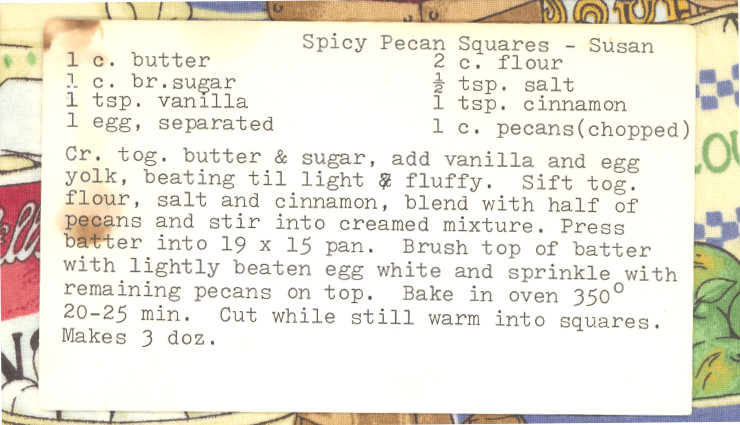 Spicy Pecan Squares - Susan
1 c. butter
1 c. br.sugar
1 tsp. vanilla
1 egg, separated
2 c. flour
½ tsp. salt
1 tsp. cinnamon
1 c. pecans(chopped)
Cr. tog. butter & sugar, add vanilla and egg
yolk, beating til light & fluffy.  Sift tog.
flour, salt and cinnamon, blend with half of
pecans and stir into creamed mixture. Press
batter into 19 x 15 pan.  Brush top of batter
with lightly beaten egg white and sprinkle with
remaining pecans on top.  Bake in oven 350°
20-25 min.  Cut while still warm into squares.
Makes 3 doz.